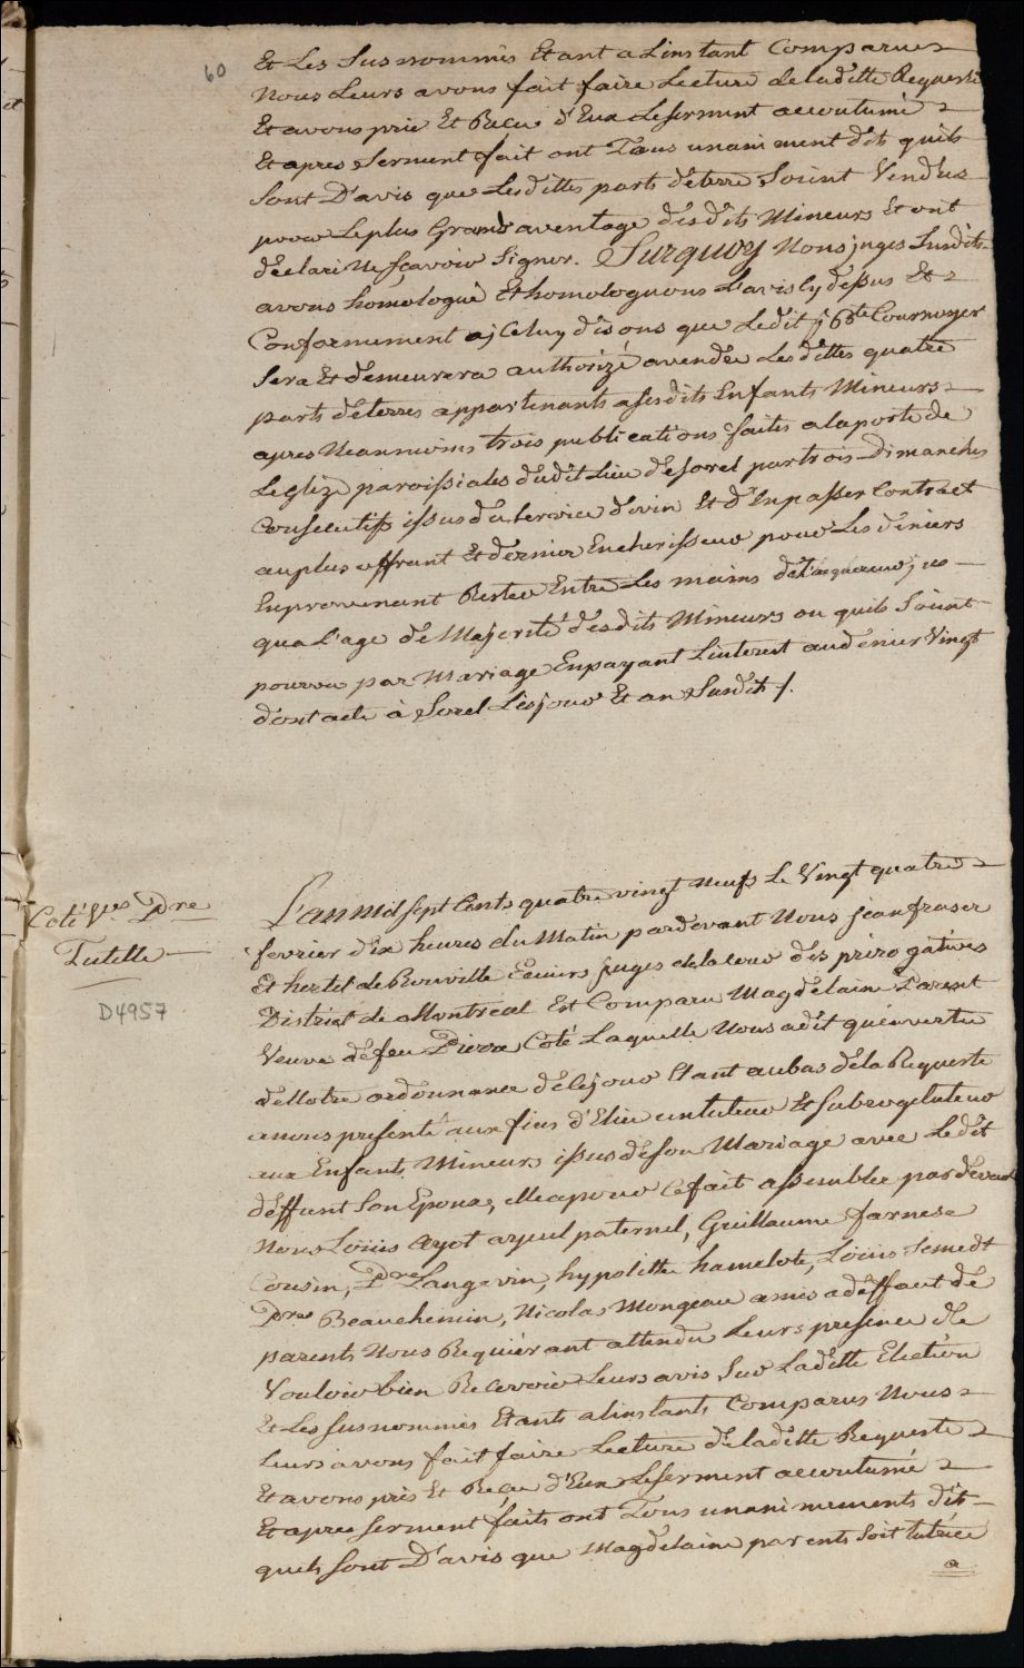 60
Et Les Susnommés Etant a Linstant Comparues
Nous Leurs avons fait faire Lecture de laditte Requeste
Et avons prie Et Reçeu d'Eux Leserment accoutumé
Et apres Serment fait ont Tous unaniment dit quils
Sont D'avis que Lesdittes parts deterre Soient Vendus
pour Leplus Grand aventage desdits Mineurs Et ont
declaré Ne sçavoir Signer. Surquoy Nous juges Susdits
avons homologué Et homologuons L'avis Cy dessus Et
Conformement a jCeluy disons que Ledit j Bte Cournoyer
Sera Et demeurera authorizé avendre Lesdittes quatre
parts deterres appartenants asesdits Enfants Mineurs
apres Neanmoins trois publications faites alaporte de
Leglize paroissiales dudit Lieu desorel partrois Dimanches
Consecutifs issus du Service divin Et d'Enpasser Contract
auplus offrant Et dernier Encherisseur pour Les deniers
Enprovenant Rester Entre Les mains del'acquereur jus
qua L'age de Majorité desdits Mineurs ou quils Soient
pourvu par Mariage Enpayant Linterest audenier Vingt
dont acte à Sorel Lesjour Et an Susdit /.
Coté Vve Pre
Tutelle
D4957
L'an Mil Sept Cents quatre vingt Neufs Le Vingt quatre
fevrier dix heures du Matin pardevant Nous jean fraser
Et hertel de Rouville Ecuiers juges delacour des prérogatives
District de Montreal Est Comparu Magdelaine Parent
Veuve defeu Pierre Coté Laquelle Nous adit quenvertu
deNotre ordonnance deCejour Etant aubas dela Requeste
anous presenté aux fins d'Elire untuteur Et Subrogetuteur
aux Enfants Mineurs issus deson Mariage avec Ledit
deffunt Son Epoux, elle apour Cefait assemblée pardevant
Nous Loüis Ayot ayeul paternel, Guillaume farnese
Cousin, Pre Langevin, hypolitte hamelote, Loüis
Pre Beauchemin, Nicolas Mongeau amis adeffaut de
parents Nous Requièrant attendu Leurs presence de
Vouloir bien Recevoir Leurs avis Sur Laditte Election
Et Les Susnommés Etants alinstants Comparus Nous
Leurs avons fait faire Lecture deladitte Requeste
Et avons pris Et Reçeu d'Eux Leserment accoutumé
Et apres Serment faits ont Tous unanimements dit
quels Sont D'avis que Magdelaine parents Soit tutrice
a